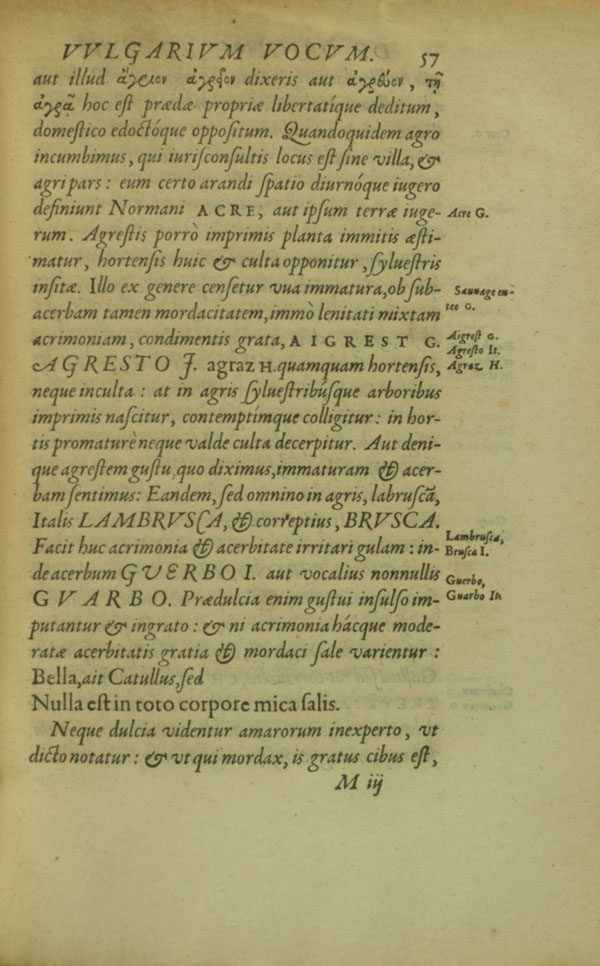 VVLGARIVM VOCVM. 57
aut illud ἄγριον ἀγρεῖον dixeris aut ἀγρῷον, τῇ
ἄγρᾳ hoc eſt prædæ propriæ libertatique deditum,
domeſtico edoctóque oppoſitum. Quandoquidem agro
incumbimus, qui iuriſconſultis locus eſt ſine villa, &
agri pars: eum certo arandi ſpatio diurnóque iugero
definiunt Normani ACRE, aut ipſum terræ iuge- Acre G.
rum. Agreſtis porrò imprimis planta immitis æſti-
matur, hortenſis huic & culta opponitur, ſylueſtris
inſitæ. Illo ex genere cenſetur vua immatura, ob ſub- Sauuage en-
acerbam tamen mordacitatem, immò lenitati mixtam tee G.
acrimoniam, condimentis grata, AIGREST G. Aigreſt G.
AGRESTO J. agraz H. quamquam hortenſis, Agreſto It.
neque inculta: at in agris ſylueſtribúſque arboribus Agraz H.
imprimis naſcitur, contemptimque colligitur: in hor-
tis promaturè neque valde culta decerpitur. Aut deni-
que agreſtem guſtu, quo diximus, immaturam & acer-
bam ſentimus: Eandem, ſed omnino in agris, labruſcā,
Italis LAMBRVSCA, & correptius, BRVSCA.
Facit huc acrimonia & acerbitate irritari gulam: in- Lambruſca,
de acerbum GVERBO I. aut vocalius nonnullis Bruſca I.
GVARBO. Prædulcia enim guſtui inſulſo im- Guerbo,
putantur & ingrato: & ni acrimonia hácque mode- Guarbo It.
ratæ acerbitatis gratia & mordaci ſale varientur:
Bella, ait Catullus, ſed
Nulla eſt in toto corpore mica ſalis.
Neque dulcia videntur amarorum inexperto, vt
dicto notatur: & vt qui mordax, is gratus cibus eſt,
M iij